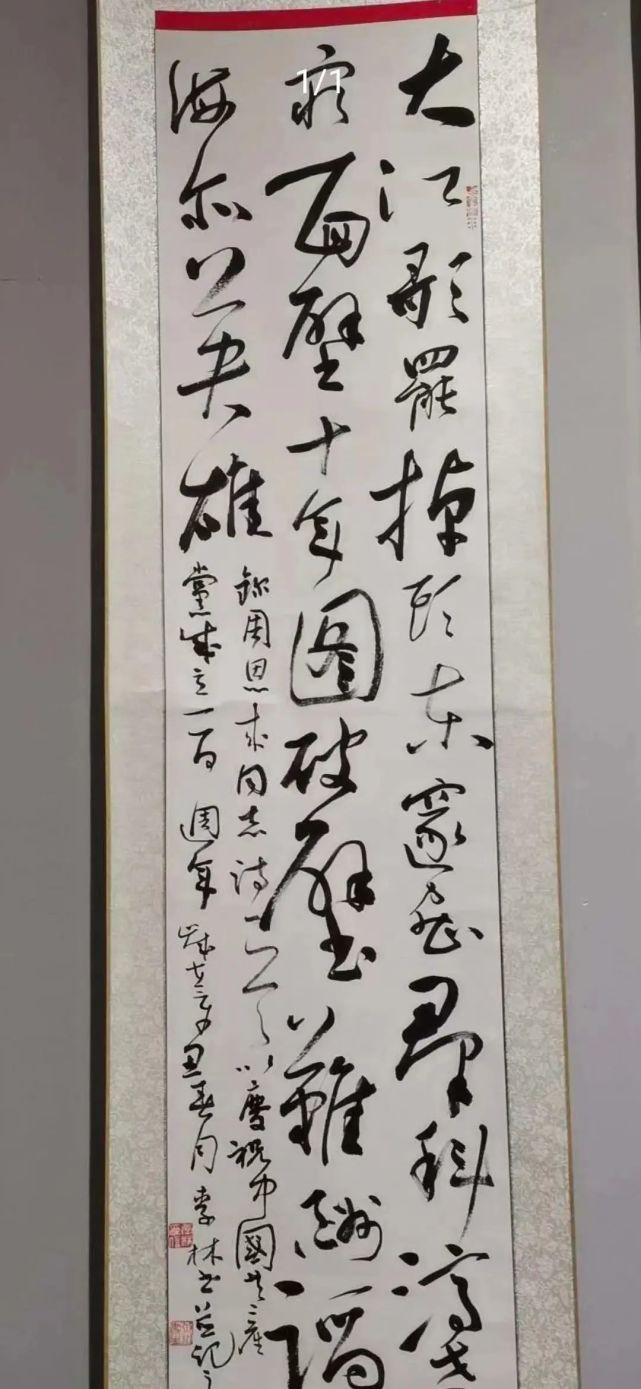 1/1
大江歌罷掉頭東邃密羣科濟世
窮面壁十年圖破壁難酬蹈
海亦英雄
錄周恩來同志詩一首以慶祝中國共產
黨成立一百週年歲在辛丑春月李林書並記之